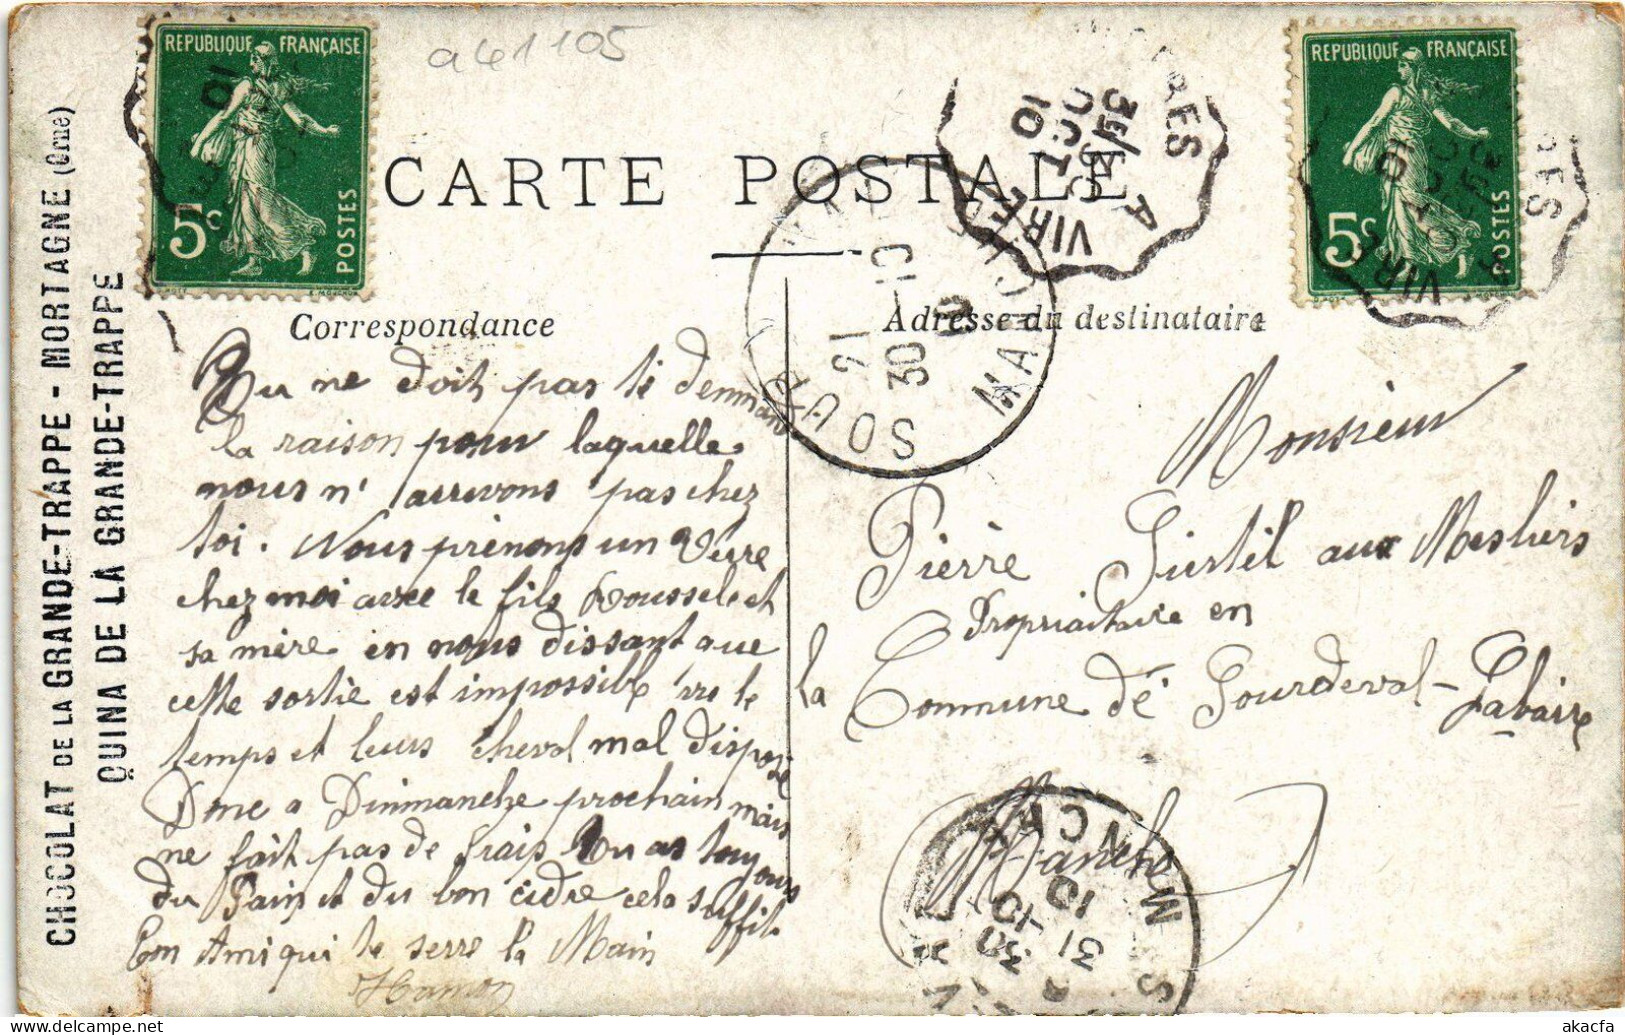 a61105
REPUBLIQUE FRANÇAISE
5c
POSTES
REPUBLIQUE FRANÇAISE
5c
POSTES
CARTE POSTALE
VIRE
SOURDEVAL
MANCHE
21
30 -10
10
Correspondance
Adresse du destinataire
CHOCOLAT DE LA GRANDE-TRAPPE - MORTAGNE (Orne)
QUINA DE LA GRANDE-TRAPPE
Tu ne doit pas te demmande
la raison pour laquelle
nous n' arrivons pas chez
toi. Nous prènons un Verre
chez moi avec le fils Rousselet
sa mère en nous dissant que
cette sortie est impossible vre le
temps et leurs cheval mal dispose
Donc a Dinmanche prochain mais
ne fait pas de frais tu as toujours
du Pain et du bon cidre cela suffit
Ton Ami qui te serre la Main
Hamon
Monsieur
Pierre aux Mesliers
Propriaitaire en
la Commune dé Sourdeval-
Manche
31
10
akacfa